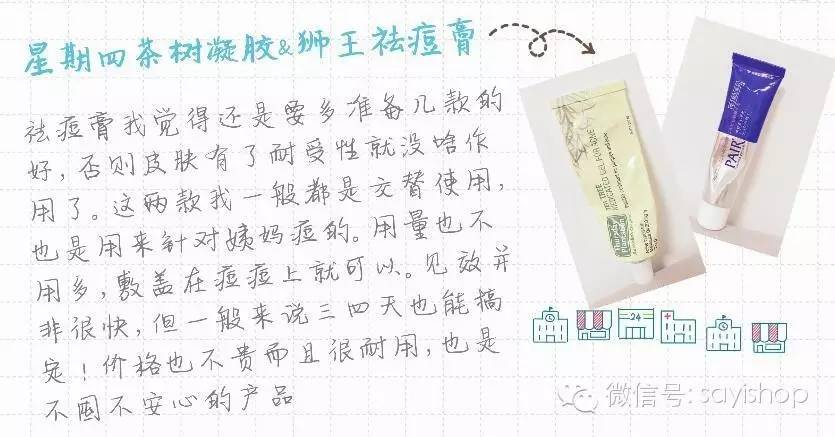 星期四茶树凝胶&狮王祛痘膏
祛痘膏我觉得还是要多准备几款的
好，否则皮肤有了耐受性就没啥作
用了。这两款我一般都是交替使用，
也是用来针对姨妈痘的。用量也不
用多，敷盖在痘痘上就可以。见效并
非很快，但一般来说三四天也能搞
定！价格也不贵而且很耐用，也是
不囤不安心的产品
TEA TREE
MEDICATED GEL FOR ACNE
Thursday
Plantation
PAIR
24
微信号: sayishop